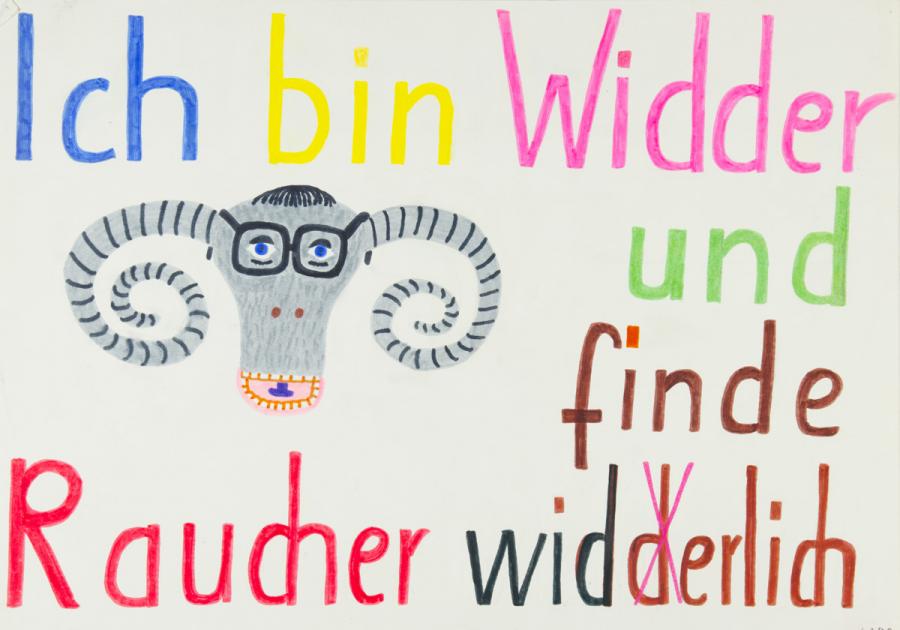 Ich bin Widder
und
finde
Raucher widderlich